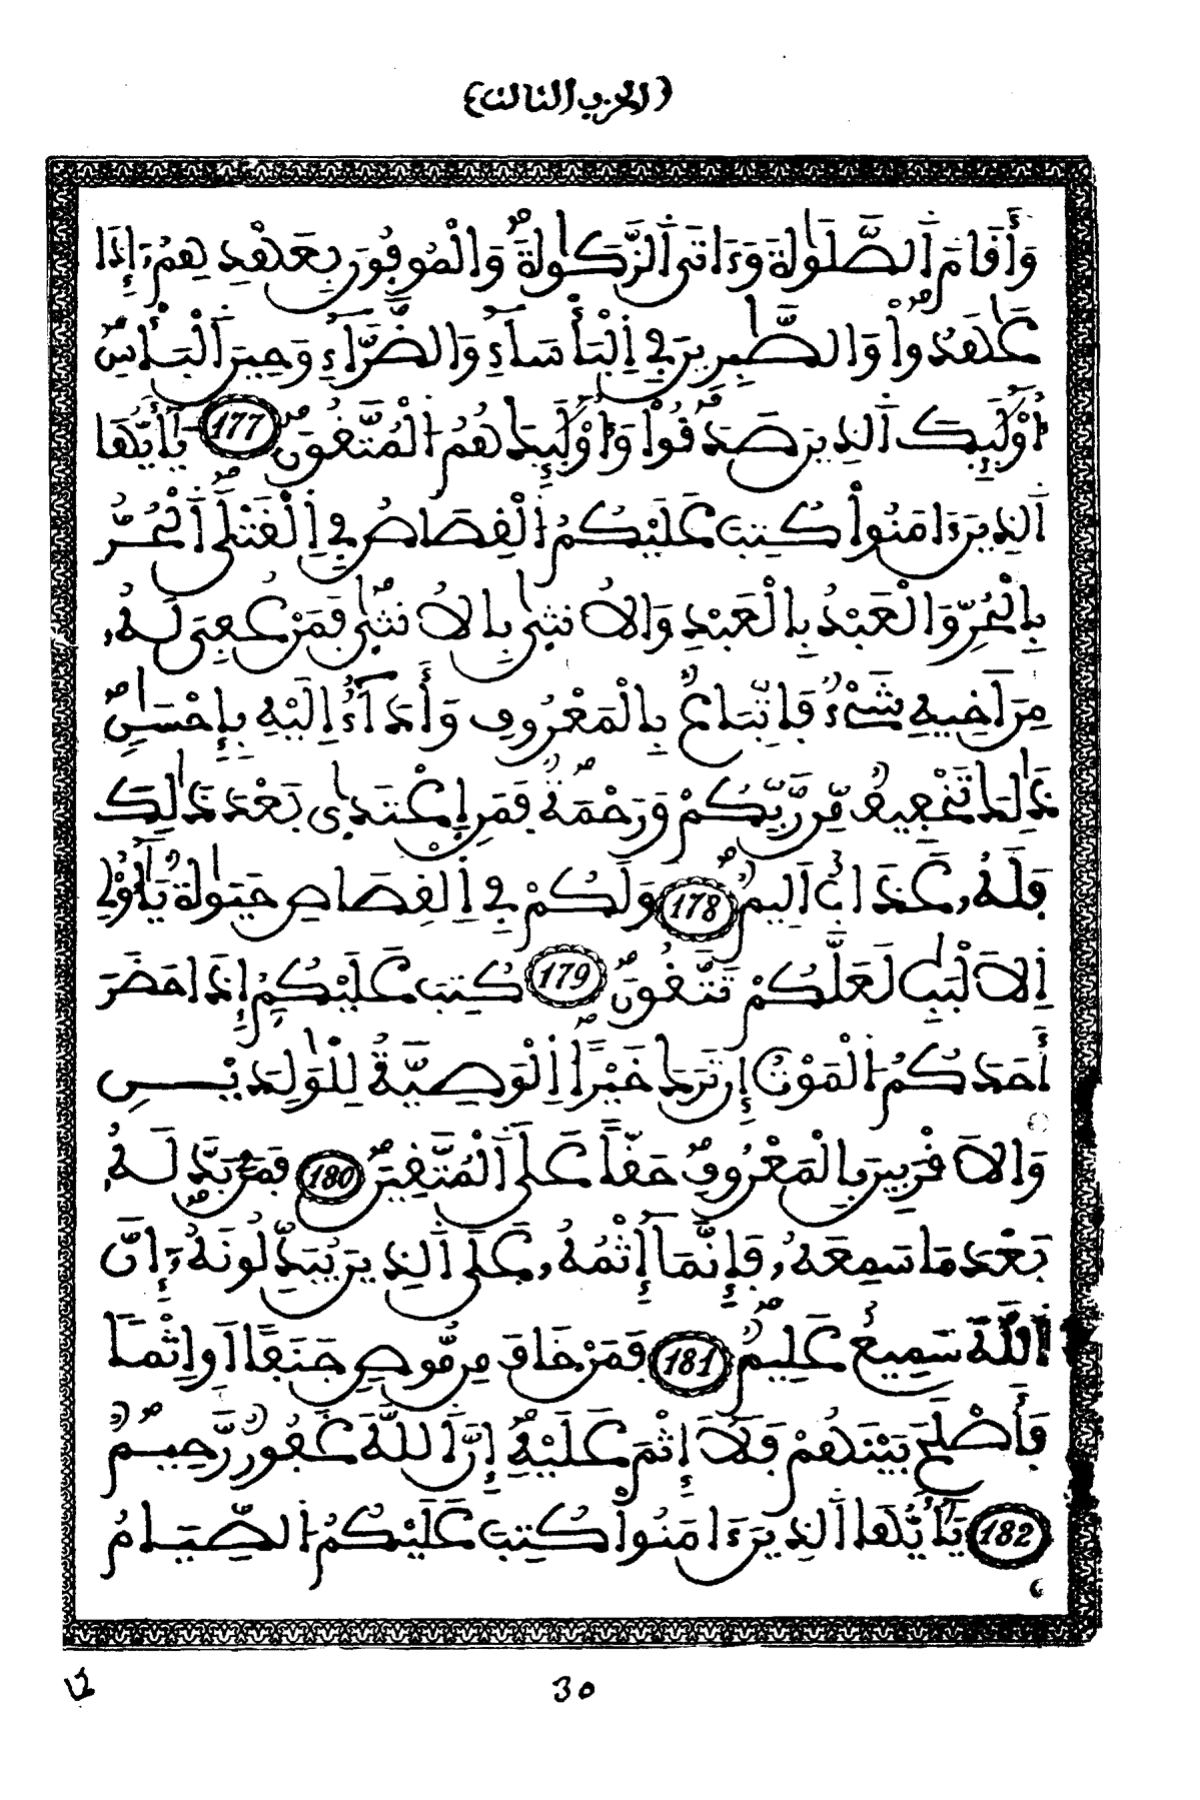 (الحزب الثالث)
وَأَقَامَ اَ۬لصَّلَوٰةَ وَءَاتَى اَ۬لزَّكَوٰةَۖ وَالْمُوفُونَ بِعَهْدِهِمُۥٓ إِذَا
عَٰهَدُواْۖ وَالصَّٰبِرِينَ فِي اِ۬لْبَأْسَآءِ وَالضَّرَّآءِ وَحِينَ اَ۬لْبَأْسِۖ
أُوْلَٰٓئِكَ اَ۬لذِينَ صَدَقُواْۖ وَأُوْلَٰٓئِكَ هُمُ اُ۬لْمُتَّقُونَۖ 177 يَٰٓأَيُّهَا
اَ۬لذِينَ ءَامَنُواْ كُتِبَ عَلَيْكُمُ اُ۬لْقِصَاصُ فِي اِ۬لْقَتْلَىۖ اَ۬لْحُرُّ
بِالْحُرِّ وَالْعَبْدُ بِالْعَبْدِ وَالُانث۪ىٰ بِالُانث۪ىٰۖ فَمَنْ عُفِيَ لَهُۥ
مِنَ اَخِيهِ شَےْءٞ فَاتِّبَاعُۢ بِالْمَعْرُوفِ وَأَدَآءٌ اِلَيْهِ بِإِحْسَٰنٖۖ
ذَٰلِكَ تَخْفِيفٞ مِّن رَّبِّكُمْ وَرَحْمَةٞۖ فَمَنِ اِ۪عْتَد۪ىٰ بَعْدَ ذَٰلِكَ
فَلَهُۥ عَذَابٌ اَلِيمٞۖ 178 وَلَكُمْ فِي اِ۬لْقِصَاصِ حَيَوٰةٞ يَٰٓأُوْلِے
اِ۬لَالْبَٰبِ لَعَلَّكُمْ تَتَّقُونَۖ 179 كُتِبَ عَلَيْكُمُۥٓ إِذَا حَضَرَ
أَحَدَكُمُ اُ۬لْمَوْتُ إِن تَرَكَ خَيْراًۖ اِ۬لْوَصِيَّةُ لِلْوَٰلِدَيْنِ
وَالَاقْرَبِينَ بِالْمَعْرُوفِۖ حَقّاً عَلَى اَ۬لْمُتَّقِينَۖ 180 فَمَنۢ بَدَّلَهُۥ
بَعْدَ مَا سَمِعَهُۥ فَإِنَّمَآ إِثْمُهُۥ عَلَى اَ۬لذِينَ يُبَدِّلُونَهُۥٓۖ إِنَّ
اَ۬للَّهَ سَمِيعٌ عَلِيمٞۖ 181 فَمَنْ خَافَ مِن مُّوصٖ جَنَفاً اَوِ اِثْماٗ
فَأَصْلَحَ بَيْنَهُمْ فَلَآ إِثْمَ عَلَيْهِۖ إِنَّ اَ۬للَّهَ غَفُورٞ رَّحِيمٞۖ
182 يَٰٓأَيُّهَا اَ۬لذِينَ ءَامَنُواْ كُتِبَ عَلَيْكُمُ اُ۬لصِّيَامُ
30